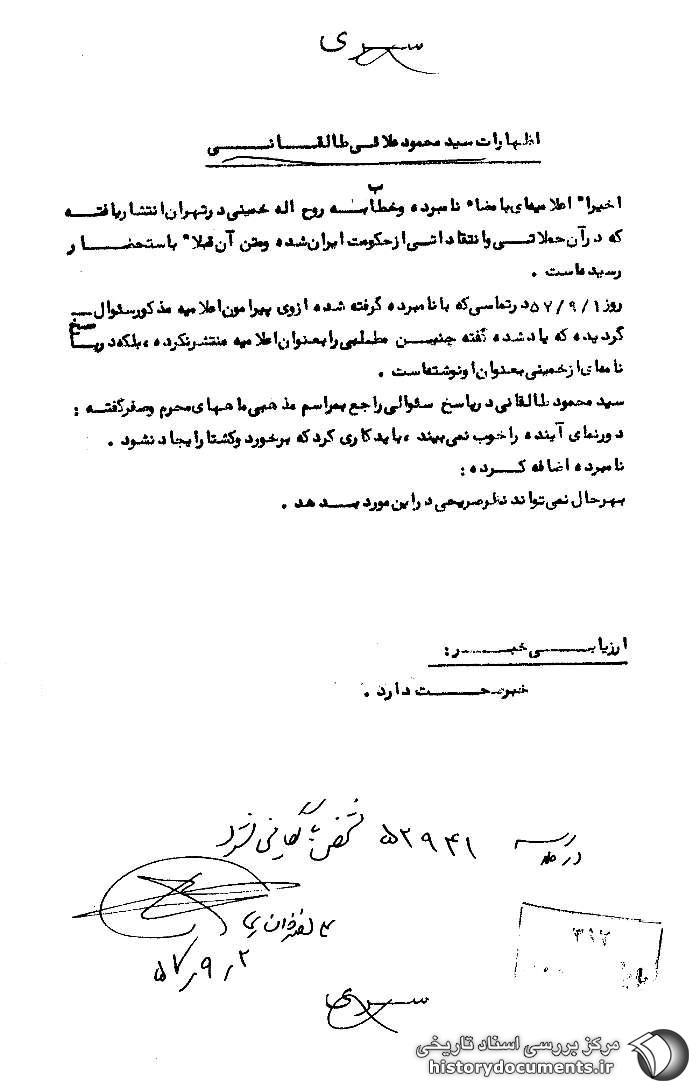 سری
اظهارات سید محمود علائی طالقانی
اخیرا" اعلامیه‌ای بامضاء نامبرده وخطاب به روح اله خمینی در تهران انتشار یافته
که در آن حملاتی وانتقاداتی از حکومت ایران شده ومتن آن قبلا" باستحضار
رسیده است .
روز ۵۷/۹/۱ در تماسی که با نامبرده گرفته شده از وی پیرامون اعلامیه مذکور سئوال
گردیده که یاد شده گفته چنین مطلبی را بعنوان اعلامیه منتشر نکرده ، بلکه در پاسخ
نامه‌ای از خمینی بعنوان او نوشته است .
سید محمود طالقانی در پاسخ سئوالی راجع بمراسم مذهبی ماههای محرم وصفر گفته :
دورنمای آینده را خوب نمی بیند ، باید کاری کرد که برخورد وکشتار ایجاد نشود .
نامبرده اضافه کرده :
بهرحال نمی تواند نظر صریحی در این مورد بدهد .
ارزیابی خبر :
خبر صحت دارد .
۵۲۹۴۱
۵۷/۹/۲
۳۱۲
سری
مرکز بررسی اسناد تاریخی
historydocuments.ir